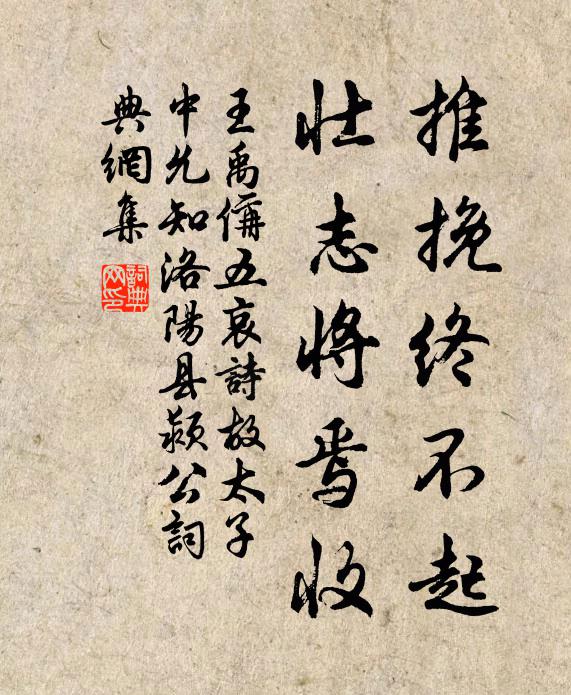 推挽终不起
壮志将焉收
王禹偁五哀詩故太子
中允知洛陽县潁公詞
典網集
詞典网印